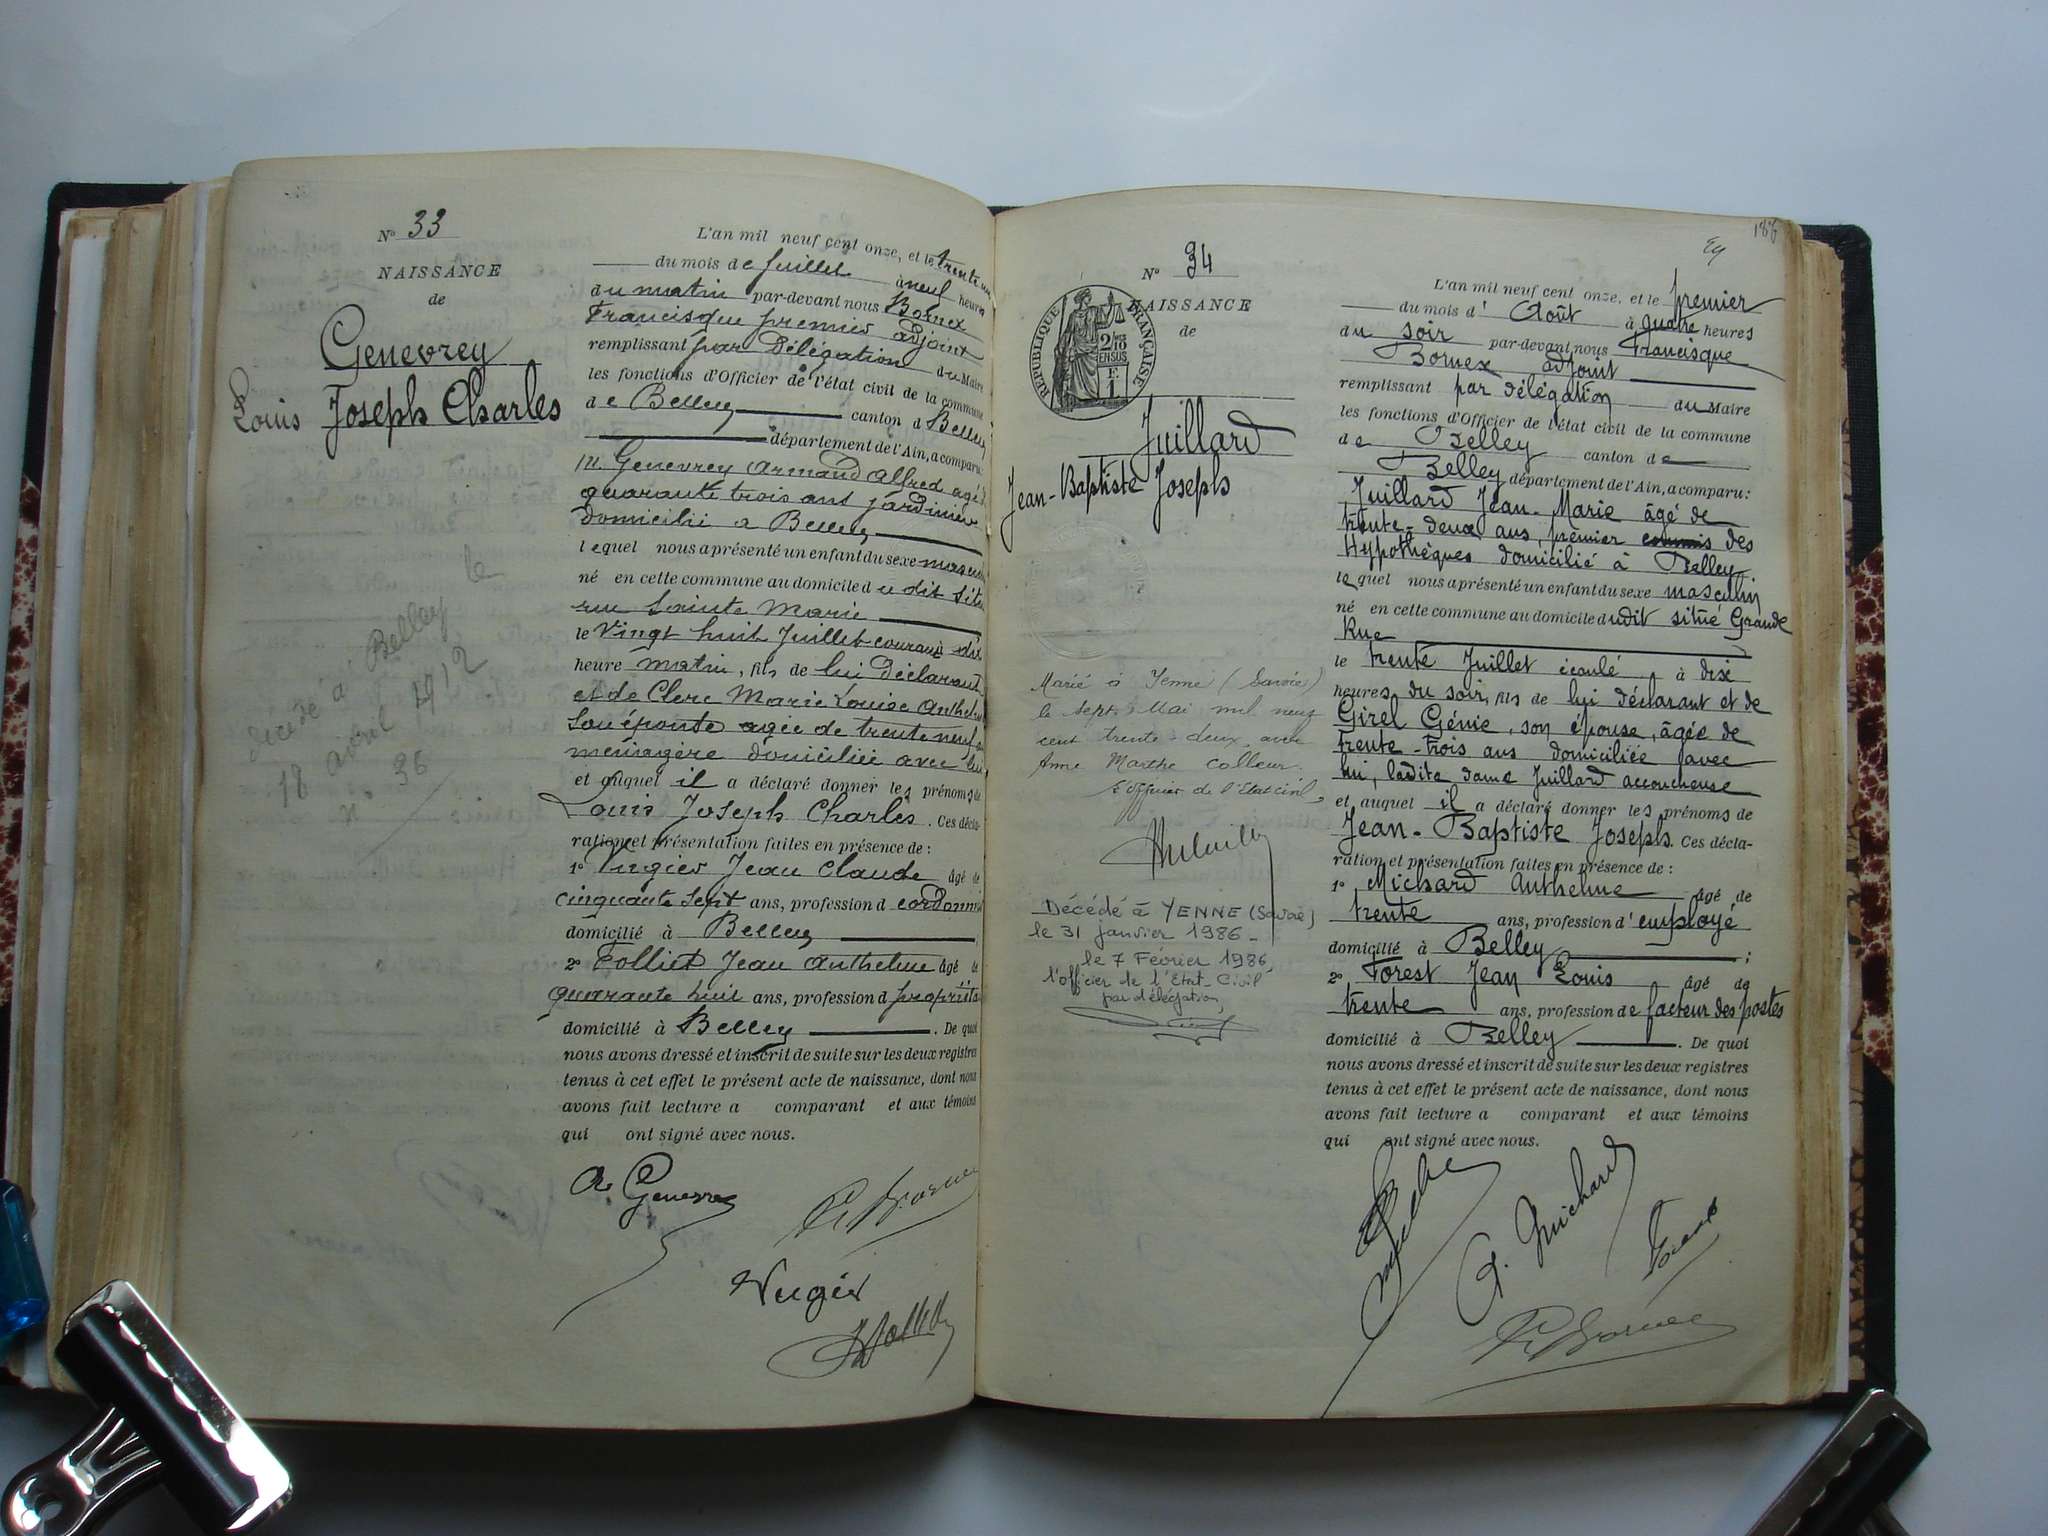 N° 33
NAISSANCE
de
Genevrey
Louis Joseph Charles
décédé à Belley le
18 avril 1912
n° 36
L'an mil neuf cent onze, et le trente un
du mois de Juillet à neuf heures
du matin par-devant nous Bornex
Francisque premier adjoint
remplissant par Délégation du Maire
les fonctions d'Officier de l'état civil de la commune
de Belley canton d Belley
département de l'Ain, a comparu:
M. Genevrey Armand Alfred agé d
quarante trois ans jardinier
domicilié a Belley
lequel nous a présenté un enfant du sexe mascu
né en cette commune au domicile du dit situ
rue Sainte Marie
le Vingt huit Juillet courant dix
heure matin, fils de lui Déclarant
et de Clerc Marie Louise Anthel
son épouse agée de trente neuf
menagère domiciliée avec lui
et auquel il a déclaré donner les prénoms de
Louis Joseph Charles. Ces décla-
ration et présentation faites en présence de :
1° Vugier Jean Claude âgé de
cinquante sept ans, profession d cordonni
domicilié à Belley
2° Folliet Jean Anthelme âgé de
quarante huit ans, profession d propriéta
domicilié à Belley . De quoi
nous avons dressé et inscrit de suite sur les deux registres
tenus à cet effet le présent acte de naissance, dont nous
avons fait lecture a comparant et aux témoins
qui ont signé avec nous.
A. Genevrey
Fr Bornex
Vugier
186
N° 34
NAISSANCE
de
RÉPUBLIQUE FRANÇAISE
2/10
EN SUS
F.
1
Juillard
Jean-Baptiste Joseph
Marié à Yenne (Savoie)
le sept Mai mil neuf
cent trente-deux avec
Anne Marthe Colleur.
L'officier de l'Etat civil,
Décédé à YENNE (Savoie)
le 31 janvier 1986 -
le 7 Février 1986,
l'officier de l'Etat-Civil
par délégation,
L'an mil neuf cent onze, et le premier
du mois d'Août à quatre heures
du soir par-devant nous Francisque
Bornex adjoint
remplissant par délégation du Maire
les fonctions d'Officier de l'état civil de la commune
de Belley canton de
Belley département de l'Ain, a comparu:
Juillard Jean-Marie âgé de
trente-deux ans, premier commis des
Hypothèques domicilié à Belley
lequel nous a présenté un enfant du sexe masculin
né en cette commune au domicile dudit situé Grande
Rue
le trente Juillet écoulé à dix
heures du soir, fils de lui déclarant et de
Girel Génie, son épouse, âgée de
trente-trois ans domiciliée avec
lui, ladite dame Juillard accoucheuse
et auquel il a déclaré donner les prénoms de
Jean-Baptiste Joseph. Ces décla-
ration et présentation faites en présence de :
1° Michard Anthelme âgé de
trente ans, profession d'employé
domicilié à Belley ;
2° Forest Jean Louis âgé de
trente ans, profession de facteur des postes
domicilié à Belley . De quoi
nous avons dressé et inscrit de suite sur les deux registres
tenus à cet effet le présent acte de naissance, dont nous
avons fait lecture a comparant et aux témoins
qui ont signé avec nous.
Fr Bornex